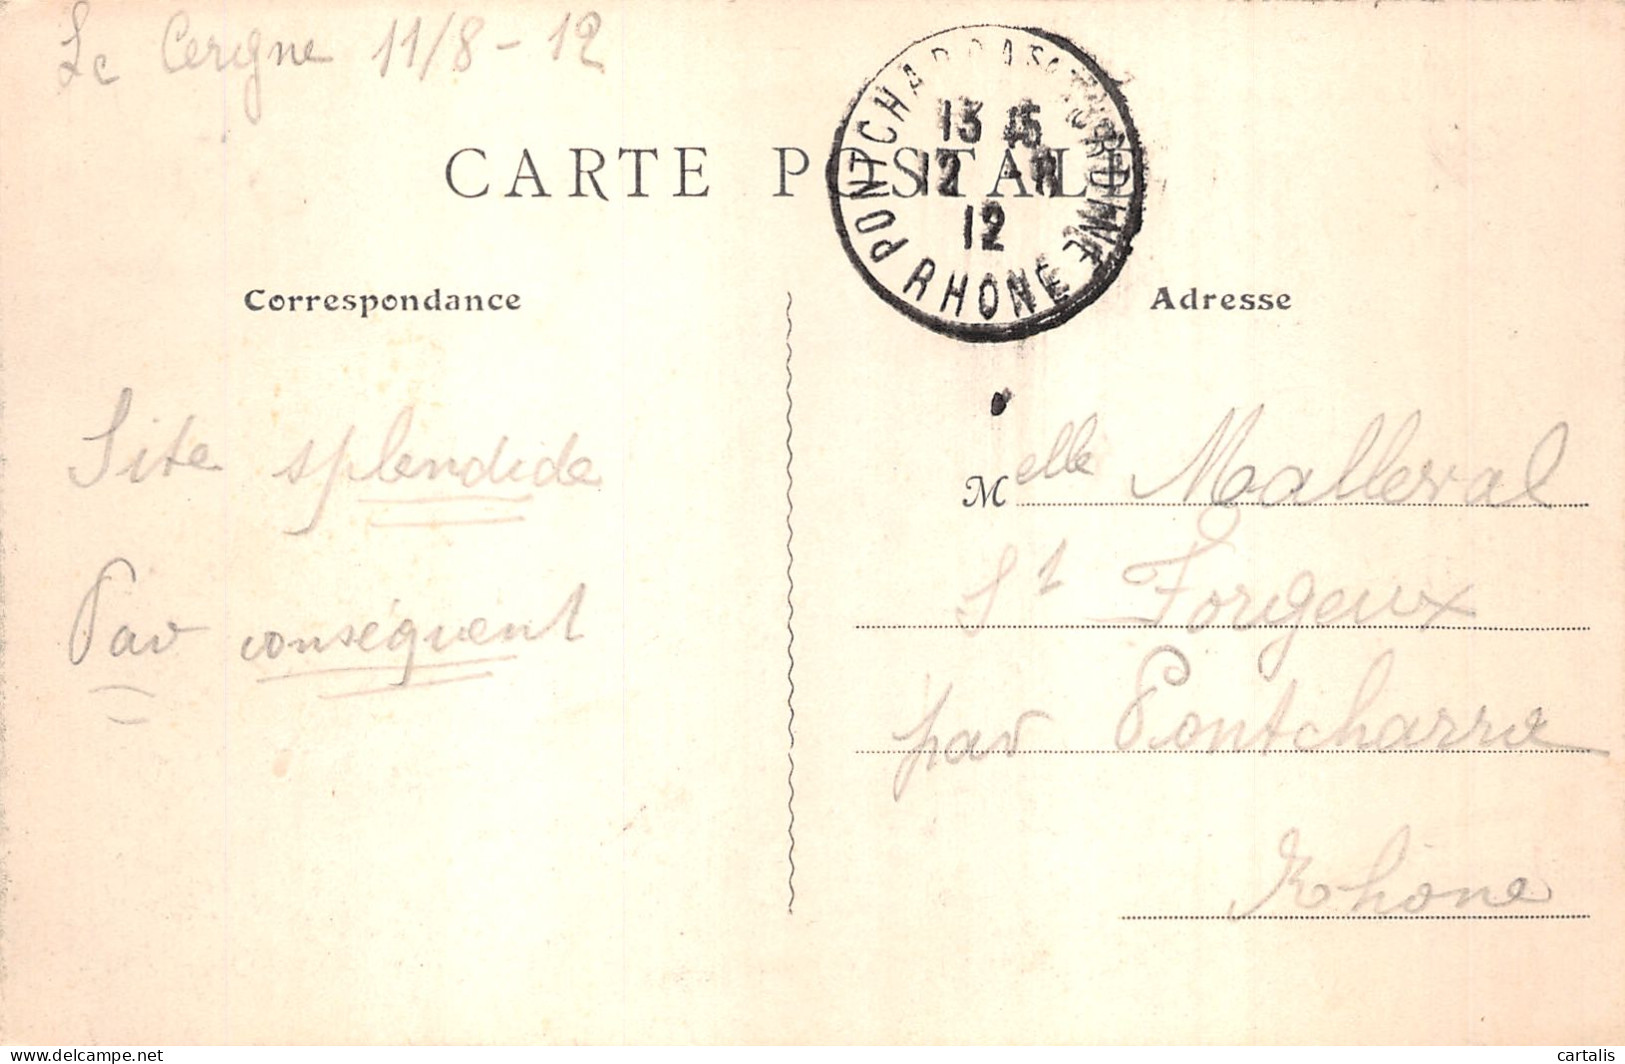 Le Cergne 11/8 - 12
CARTE POSTALE
PONTCHARRA
13 15
12 -8
12
RHONE
Correspondance
Adresse
Site splendide
Par conséquent
Melle Malleval
St Forgeux
par Pontcharra
Rhône
delcampe.net
cartalis